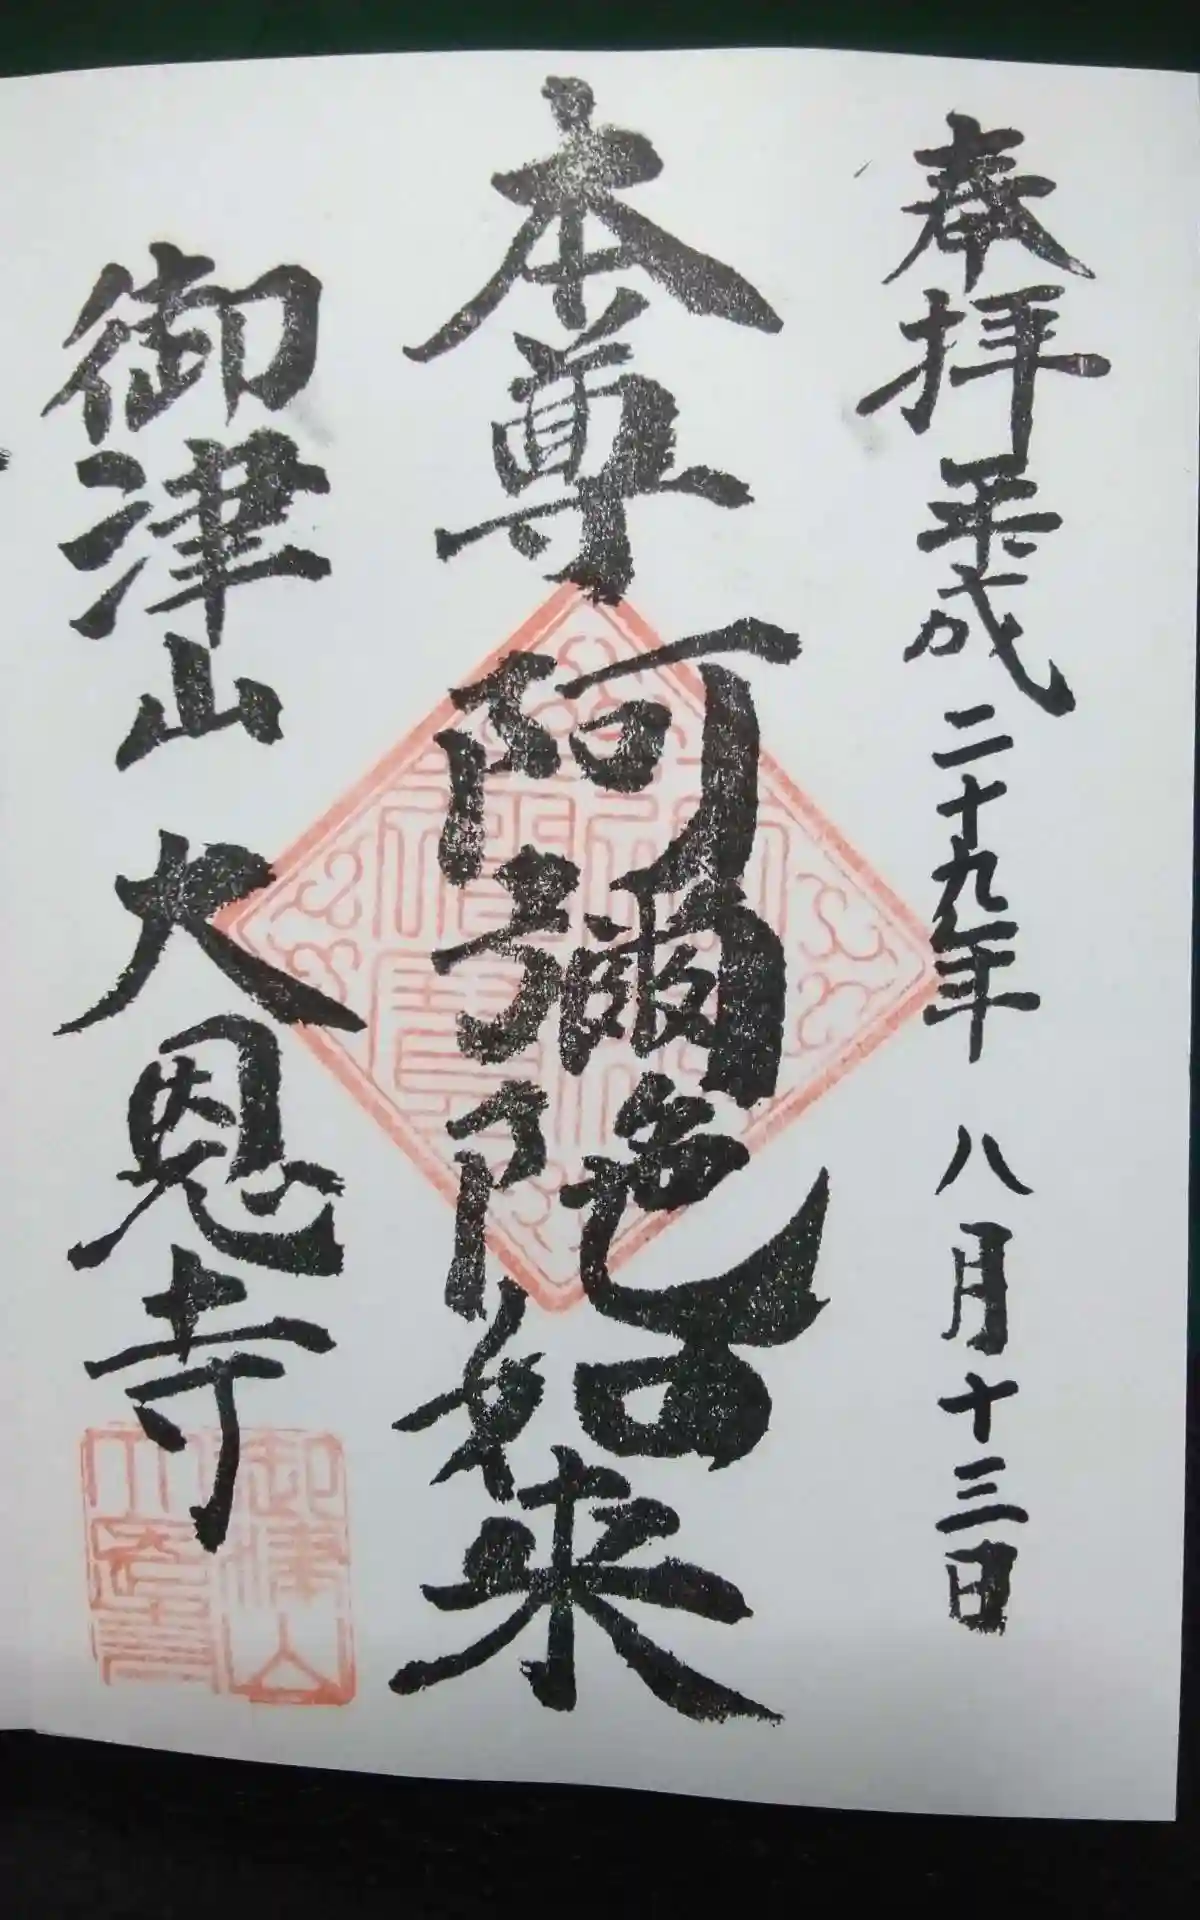 奉拝 平成二十九年 八月十三日
本尊 阿彌陀如来
御津山 大恩寺
御津山
大恩寺